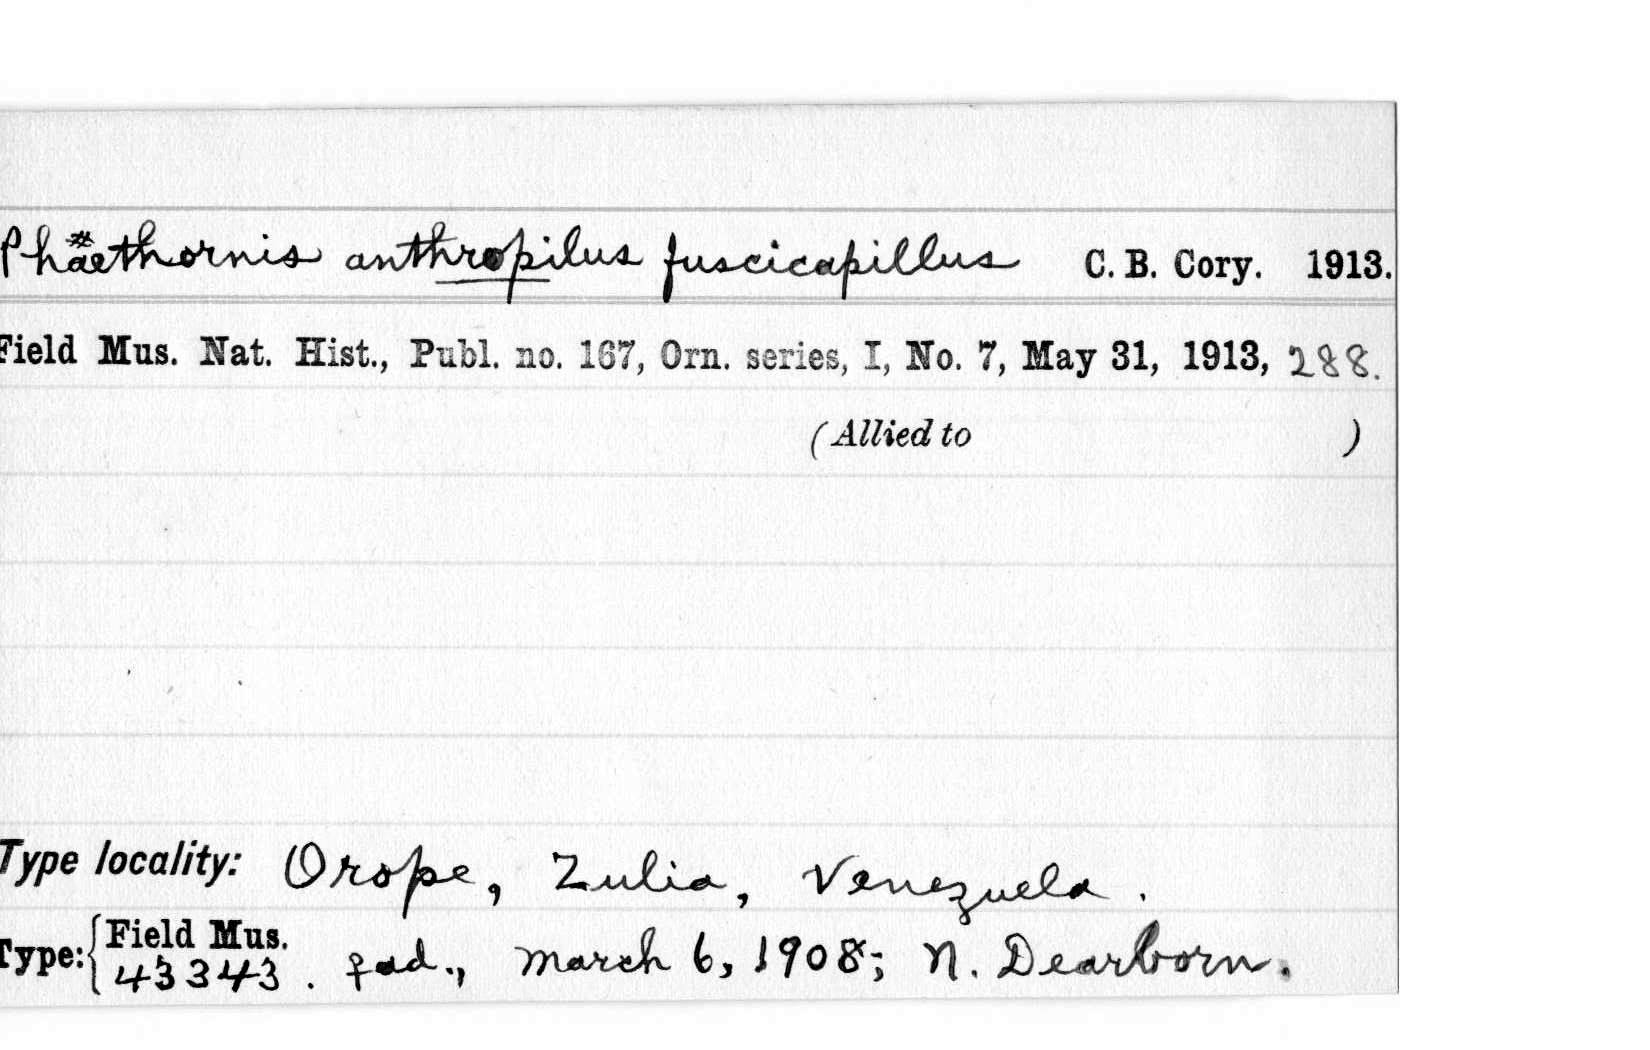 Phaethornis anthropilus fuscicapillus C. B. Cory. 1913.
Field Mus. Nat. Hist., Publ. no. 167, Orn. series, I, No. 7, May 31, 1913, 288.
(Allied to )
Type locality: Orope, Zulia, Venezuela.
Type: { Field Mus.
43343. ♀ ad., March 6, 1908; N. Dearborn.